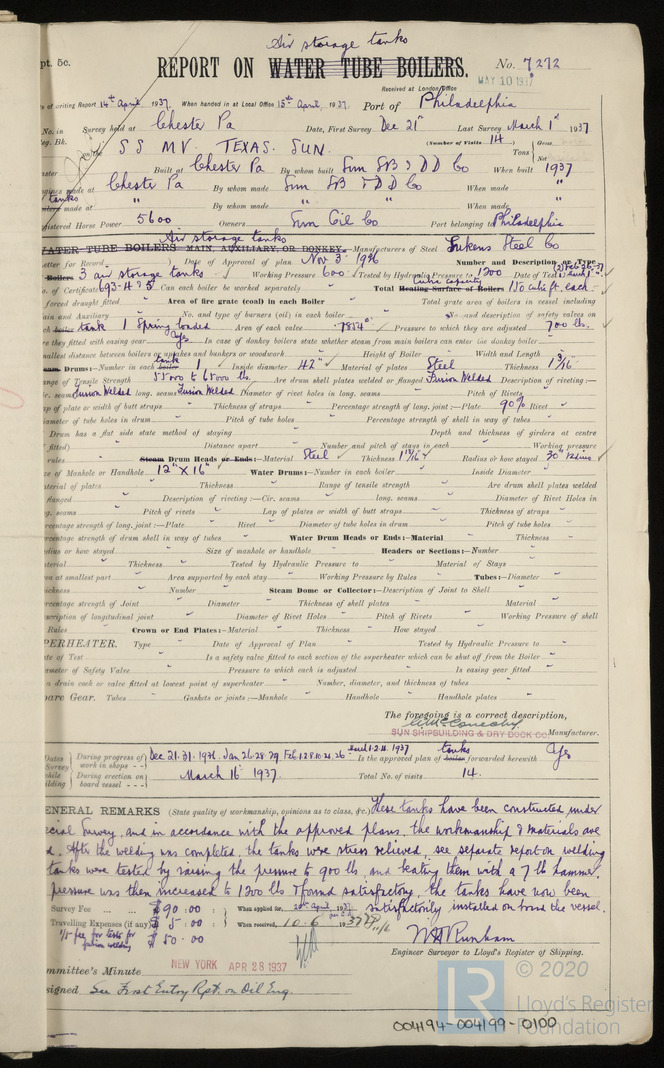 Air storage tanks
pt. 5c. REPORT ON WATER TUBE BOILERS. No. 7272
MAY 10 1937
Received at London Office
e of writing Report 14th April 1937. When handed in at Local Office 15th April, 1937. Port of Philadelphia
No. in Survey held at Chester Pa Date, First Survey Dec 21st Last Survey March 1st 1937
eg. Bk. (Number of Visits 14) Gross
on the SS MV. TEXAS SUN. Tons Net
aster Built at Chester Pa By whom built Sun SB & DD Co When built 1937
gines made at Chester Pa By whom made Sun SB & DD Co When made "
tanks
ilers made at " By whom made " " When made "
gistered Horse Power 5600 Owners Sun Oil Co Port belonging to Philadelphia
Air storage tanks
WATER TUBE BOILERS MAIN, AUXILIARY, OR DONKEY.—Manufacturers of Steel Lukens Steel Co
etter for Record Date of Approval of plan Nov 3rd 1936 Number and Description or Type
Boilers 3 air storage tanks Working Pressure 600 Tested by Hydraulic Pressure to 1200 Date of Test
o. of Certificate 693-4 & 5 Can each boiler be worked separately Cubic capacity Total Heating Surface of Boilers 150 cub ft. each.
forced draught fitted Area of fire grate (coal) in each Boiler Total grate area of boilers in vessel including
ain and Auxiliary No. and type of burners (oil) in each boiler No. and description of safety valves on
ach boiler tank 1 Spring loaded Area of each valve .7854 Pressure to which they are adjusted 700 lbs.
re they fitted with easing gear Yes In case of donkey boilers state whether steam from main boilers can enter the donkey boiler
mallest distance between boilers or uptakes and bunkers or woodwork Height of Boiler Width and Length
Steam Drums:—Number in each boiler tank 1 Inside diameter 42" Material of plates Steel Thickness 1 3/16"
ange of Tensile Strength 55000 to 65000 lbs Are drum shell plates welded or flanged Fusion Welded Description of riveting:—
ir. seams Fusion Welded long. seams Fusion Welded Diameter of rivet holes in long. seams Pitch of Rivets
ap of plate or width of butt straps Thickness of straps Percentage strength of long. joint:—Plate 90% Rivet
iameter of tube holes in drum Pitch of tube holes Percentage strength of shell in way of tubes
Drum has a flat side state method of staying Depth and thickness of girders at centre
fitted) Distance apart Number and pitch of stays in each Working pressure
rules Steam Drum Heads or Ends:—Material Steel Thickness 1 13/16" Radius or how stayed 30" radius
ize of Manhole or Handhole 12" X 16" Water Drums:—Number in each boiler Inside Diameter
aterial of plates Thickness Range of tensile strength Are drum shell plates welded
flanged Description of riveting:—Cir. seams long. seams Diameter of Rivet Holes in
ng. seams Pitch of rivets Lap of plates or width of butt straps Thickness of straps
ercentage strength of long. joint:—Plate Rivet Diameter of tube holes in drum Pitch of tube holes
ercentage strength of drum shell in way of tubes Water Drum Heads or Ends:—Material Thickness
adius or how stayed Size of manhole or handhole Headers or Sections:—Number
aterial Thickness Tested by Hydraulic Pressure to Material of Stays
ea at smallest part Area supported by each stay Working Pressure by Rules Tubes:—Diameter
hickness Number Steam Dome or Collector:—Description of Joint to Shell
ercentage strength of Joint Diameter Thickness of shell plates Material
escription of longitudinal joint Diameter of Rivet Holes Pitch of Rivets Working Pressure of shell
Rules Crown or End Plates:—Material Thickness How stayed
PERHEATER. Type Date of Approval of Plan Tested by Hydraulic Pressure to
ate of Test Is a safety valve fitted to each section of the superheater which can be shut off from the Boiler
ameter of Safety Valve Pressure to which each is adjusted Is easing gear fitted
a drain cock or valve fitted at lowest point of superheater Number, diameter, and thickness of tubes
pare Gear. Tubes Gaskets or joints:—Manhole Handhole Handhole plates
The foregoing is a correct description,
SUN SHIPBUILDING & DRY DOCK CO. Manufacturer.
Dates During progress of work in shops - - Dec 21.31.1936. Jan 26.28.29 Feb 1.2.8.10.21.26 1937 Is the approved plan of boiler tanks forwarded herewith Yes
Survey
while During erection on board vessel - - - March 16th 1937. Total No. of visits 14.
ilding
ENERAL REMARKS (State quality of workmanship, opinions as to class, &c.) These tanks have been constructed under
ecial Survey, and in accordance with the approved plans, the workmanship & materials are
d. After the welding was completed, the tanks were stress relieved, see separate report on welding
tanks were tested by raising the pressure to 900 lbs, and beating them with a 7 lb hammer.
pressure was then increased to 1200 lbs & found satisfactory, the tanks have now been
satisfactorily installed on board the vessel.
Survey Fee ... ... $ 90 : 00 When applied for, 20th April 1937
Travelling Expenses (if any) $ 5 : 00 When received, 10.6 1937
1/3 fee for tests for fusion welding $ 50 . 00
Engineer Surveyor to Lloyd's Register of Shipping.
ommittee's Minute NEW YORK APR 28 1937
signed See First Entry Rpt. on Oil Eng.
© 2020
LR Lloyd's Register
Foundation
004194-004199-0100